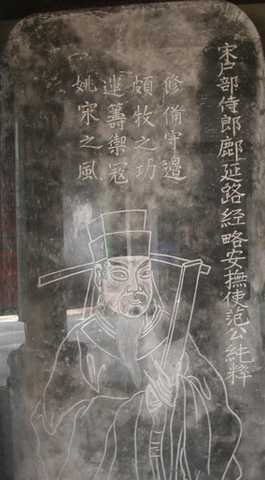 宋户部侍郎鄜延路经略安撫使范公純粹
修備守邊
頗牧之功
運籌禦寇
姚宋之風